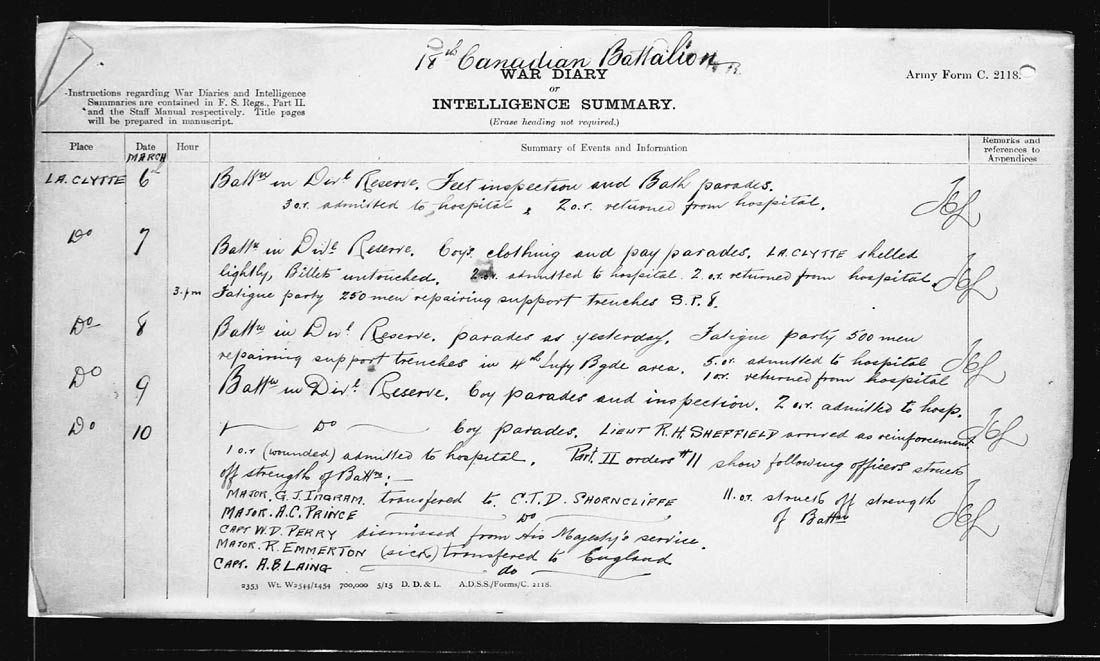 18th Canadian Battalion
WAR DIARY
or
INTELLIGENCE SUMMARY.
(Erase heading not required.)
Army Form C. 2118.
Instructions regarding War Diaries and Intelligence
Summaries are contained in F. S. Regs., Part II.
and the Staff Manual respectively. Title pages
will be prepared in manuscript.
Place Date Hour Summary of Events and Information Remarks and references to Appendices
MARCH
LA. CLYTTE 6 Battn in Divl Reserve. Feet inspection and Bath parades.
3 o.r. admitted to hospital & 2 o.r. returned from hospital.
Do 7 Battn in Divl Reserve. Coys. clothing and pay parades. LA CLYTTE shelled
lightly, Billets untouched. 2 o.r. admitted to hospital 2 o.r. returned from hospital.
3.pm Fatigue party 250 men repairing support trenches S.P. 8.
Do 8 Battn in Divl Reserve. parades as yesterday. Fatigue party 500 men
repairing support trenches in 4th Infy Bgde area. 5 or. admitted to hospital
1 or. returned from hospital
Do 9 Battn in Divl Reserve. Coy parades and inspection. 2 o.r. admitted to hosp.
Do 10 Do Coy parades. LIEUT R.H. SHEFFIELD arrived as reinforcement
1 o.r (wounded) admitted to hospital. Part II orders #11 show following officers struck
off strength of Battn:-
MAJOR. G.J. INGRAM. transfered to C.T.D. SHORNCLIFFE 11. or. struck off strength
MAJOR. A.C. PRINCE Do of Battn
CAPT W.D. PERRY dismissed from His Majesty's service.
MAJOR. R. EMMERTON (sick) transfered to England
CAPT. A.B LAING do
2353 Wt. W2544/1454 700,000 5/15 D. D. & L. A.D.S.S./Forms/C. 2118.